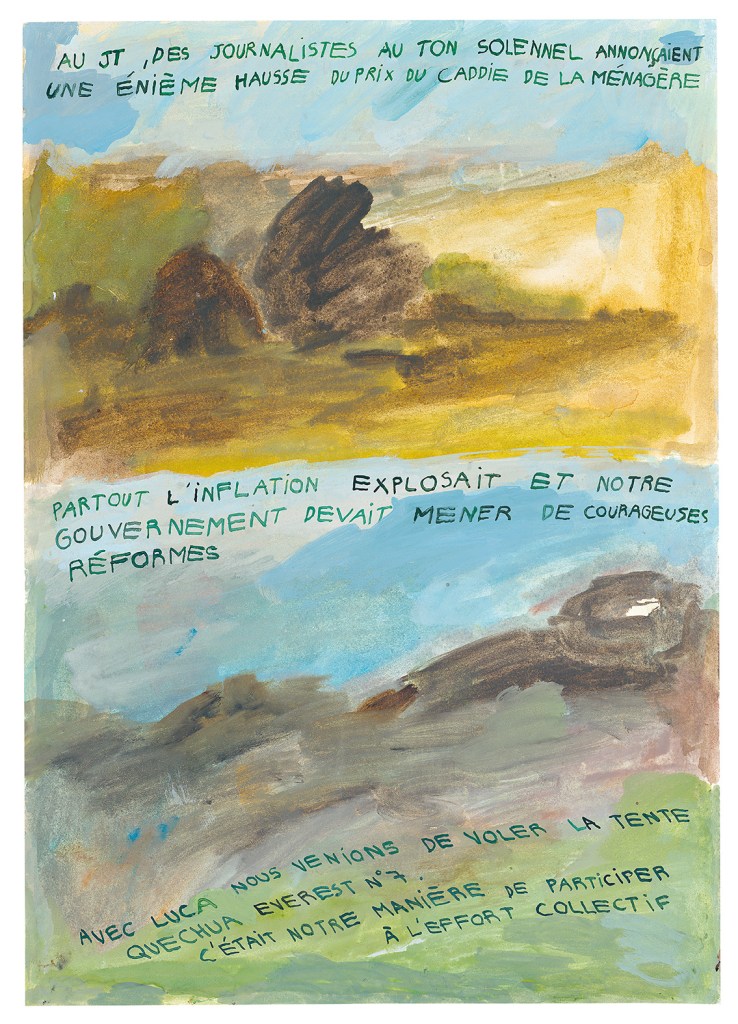 AU JT , DES JOURNALISTES AU TON SOLENNEL ANNONÇAIENT
UNE ÉNIÈME HAUSSE DU PRIX DU CADDIE DE LA MÉNAGÈRE
PARTOUT L'INFLATION EXPLOSAIT ET NOTRE
GOUVERNEMENT DEVAIT MENER DE COURAGEUSES
RÉFORMES
AVEC LUCA NOUS VENIONS DE VOLER LA TENTE
QUECHUA EVEREST N°7.
C'ÉTAIT NOTRE MANIÈRE DE PARTICIPER
À L'EFFORT COLLECTIF